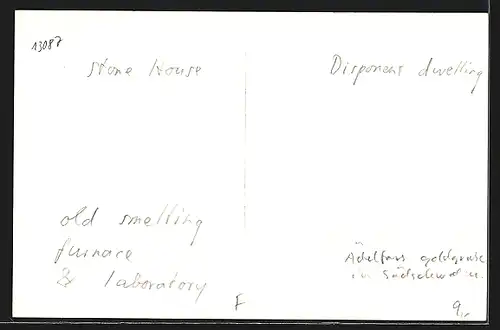 13087
Stone House
Disponent dwelling
old smelting
furnace
& laboratory
Ädelfors goldgrube
in Südschweden.
F
9,-